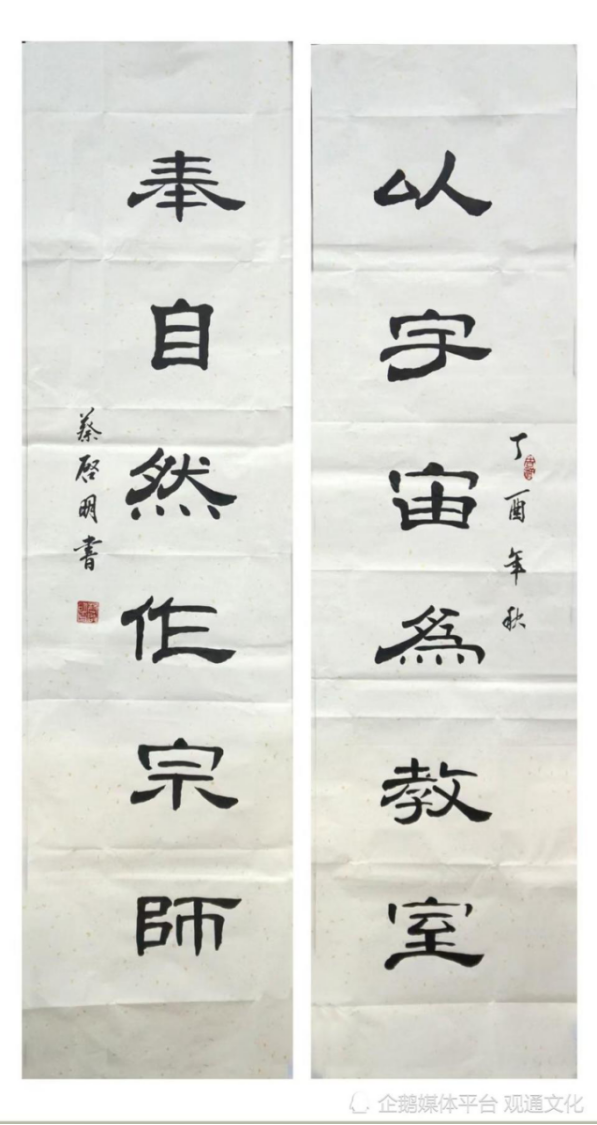 丁酉年秋
以宇宙為教室
奉自然作宗師
蔡啓明書
企鹅媒体平台 观通文化